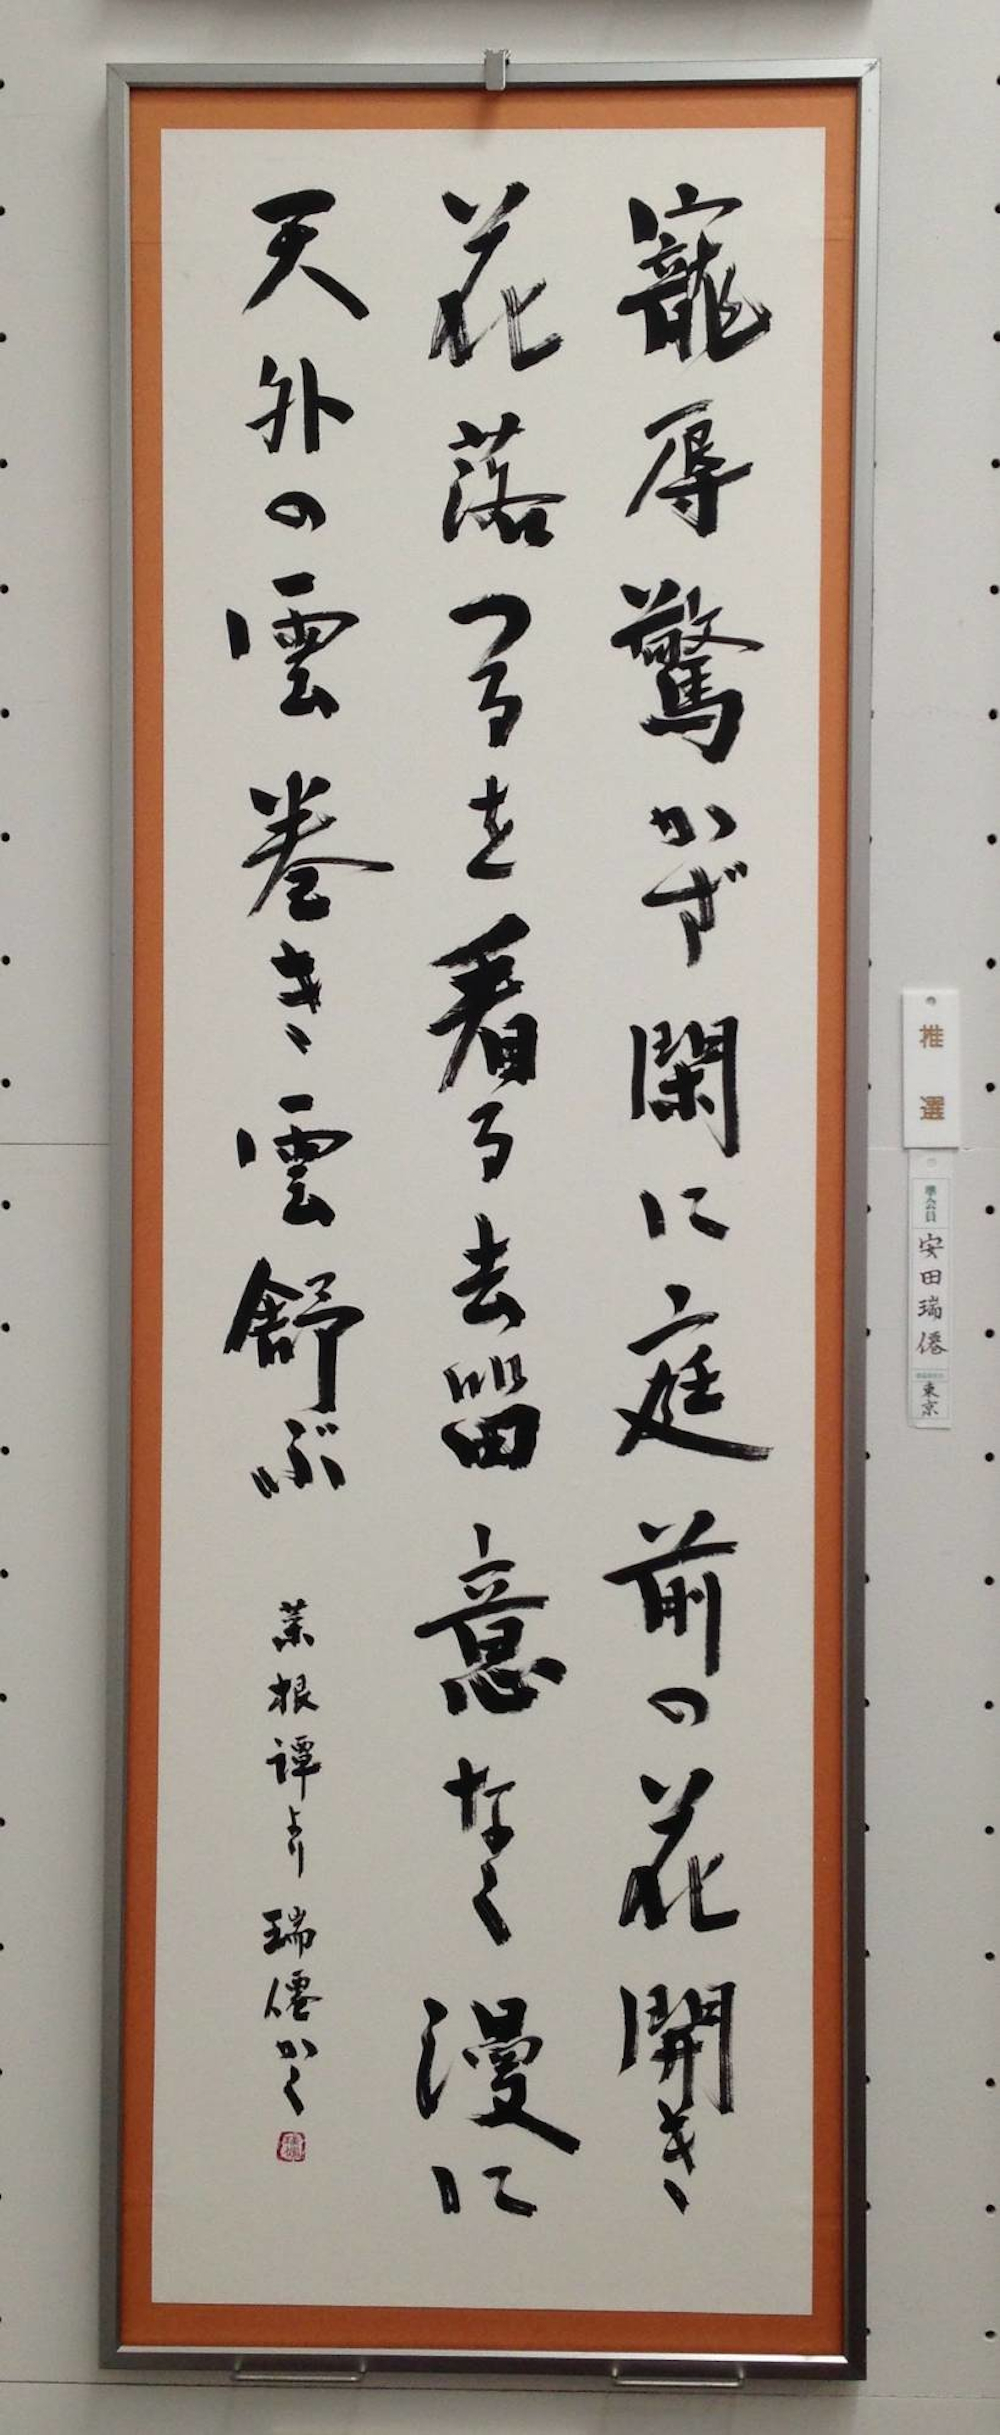 寵辱驚かず閑に庭前の花開き
花落つるを看る去留意なく漫に
天外の雲巻き雲舒ぶ
菜根譚より 瑞僊かく
推選
準会員
安田瑞僊
東京